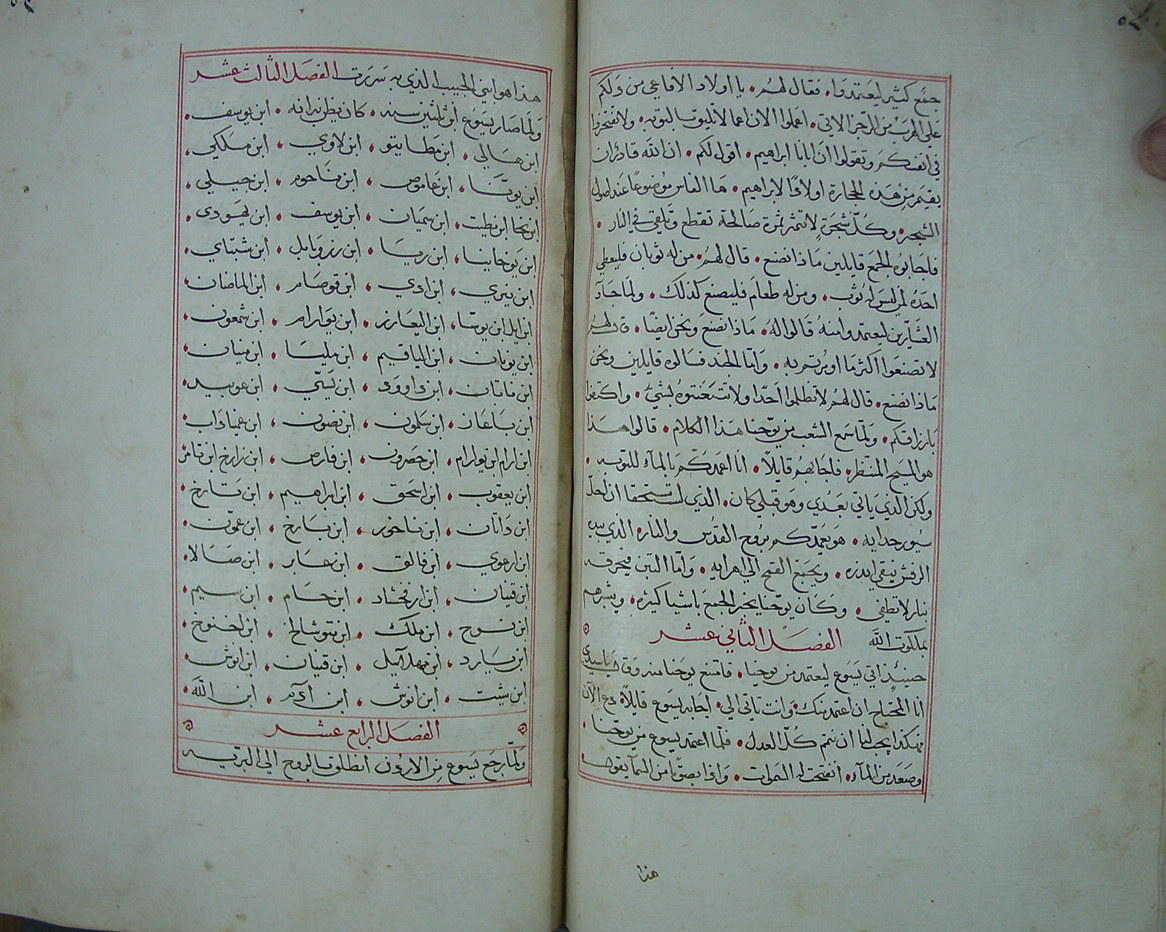 جمع كثير ليعتمدوا • فقال لهم • يا اولاد الافاعي من دلكم
على الهرب من الرجز الاتي • اعملوا الان اعمالا تليق بالتوبه • ولا تفتخروا
في انفسكم وتقولوا ان ابانا ابراهيم • اقول لكم • ان الله قادر ان
يقيم من هذه الحجارة اولادًا لابراهيم • ها الفاس موضوعًا عند اصول
الشجر • وكل شجرةٍ لا تثمر ثمرة صالحة تقطع وتلقى في النار •
فاجابوه الجمع قايلين ماذا نصنع • قال لهم • من له ثوبان فليعطي
احده لمن ليس له ثوب • ومن له طعام فليصنع كذلك • ولما جاء
العشارين ليعتمدوا منه قالوا له • ماذا نصنع ونحن ايضًا •
لا تصنعوا اكثر مما اوُمرتم به • واما الجند فسالوه قايلين ونحن
ماذا نصنع • قال لهم لا تظلموا احدًا ولا بشيءٍ • واكتفوا
بارزاقكم • ولما سمع الشعب من يوحنا هذا الكلام • قالوا هذا
هو المسيح المنتظر • فاجابهم قايلاً • انا اعمدكم بالماء للتوبه •
ولكن الذي ياتي بعدي وهو قبلي كان • الذي لست مستحقا ان احل
سيور حدايه • هو يعمدكم بروح القدس والنار • الذي بيده
الرفش ينقي اندره • ويجمع القمح الى اهرايه • واما التبن فيحرقه
بنار لا تطفي • وكان يوحنا يخبر الجمع باشيا كثيره • ويبشرهم
بملكوت الله الفصل الثاني عشر
حينيدٍ اتى يسوع ليعتمد من يوحنا • فامتنع يوحنا منه وقال يا سيدي
انا المحتاج ان اعتمد منك • وانت تاتي الي • اجابه يسوع قايلاً • دع الآن
هكذا يجب لنا ان نتمم كل العدل • فلما اعتمد يسوع من يوحنا •
وصعد من الماء • انفتحت له السموات • واذا بصوتًا من السما يقول
هذا
هذا هو ابني الحبيب الذي به سررت الفصل الثالث عشر
ولما صار يسوع ابن ثلثين سنه • كان يظن به انه • ابن يوسف •
ابن هالي • ابن مطابتو • ابن لاوي • ابن ملكي •
ابن يونا • ابن عاموص • ابن ناحوم • ابن حسلي •
ابن نجا ابن طيت • ابن سميان • ابن يوسف • ابن يهودي •
ابن يوحانينا • ابن ريسا • ابن زروبابل • ابن شتاي •
ابن نيري • ابن ادي • ابن قوصام • ابن الماصان •
ابن ايل ابن يوسا • ابن اليعازر • ابن يوارام • ابن شمعون •
ابن يونان • ابن الياقيم • ابن مليا • ابن منيان •
ابن ماتان • ابن داوود • ابن يسّي • ابن عوبيد •
ابن باعان • ابن سلمون • ابن نصون • ابن عيناداب •
ابن ارام ابن يورام • ابن حصرون • ابن فارص •
ابن يعقوب • ابن اسحق • ابن ابراهيم • ابن تارخ •
ابن داتان • ابن ناحور • ابن يارخ • ابن عون •
ابن ارعوي • ابن فالق • ابن عابر • ابن صالا •
ابن قينان • ابن ارفخشاد • ابن حام • ابن سيم •
ابن نوح • ابن ملك • ابن متوشالح • ابن اخنوخ •
ابن يارد • ابن مهلاييل • ابن قينان • ابن انوش •
ابن شيت • ابن انوش • ابن ادم • ابن الله •
الفصل الرابع عشر
ولما رجع يسوع من الاردن انطلق بالروح الى البريه